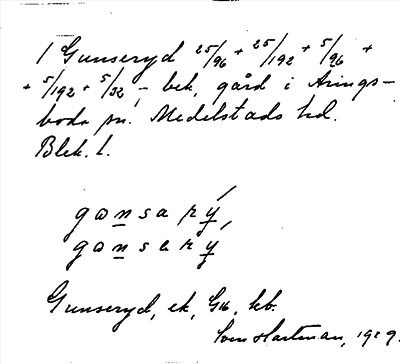 1 Gunseryd 25/96 + 25/192 + 5/96 +
+ 5/192 + 5/32, – bek. gård i Arings-
boda sn. Medelstads hd.
Blek. l.
gɷnsarý,
gɷnsary
Gunseryd, ek, Gk. kb.
Sven Hartman, 1929.